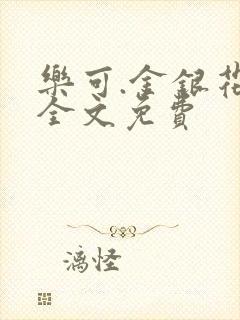 樂可.金銀花
全文免費
漓怪